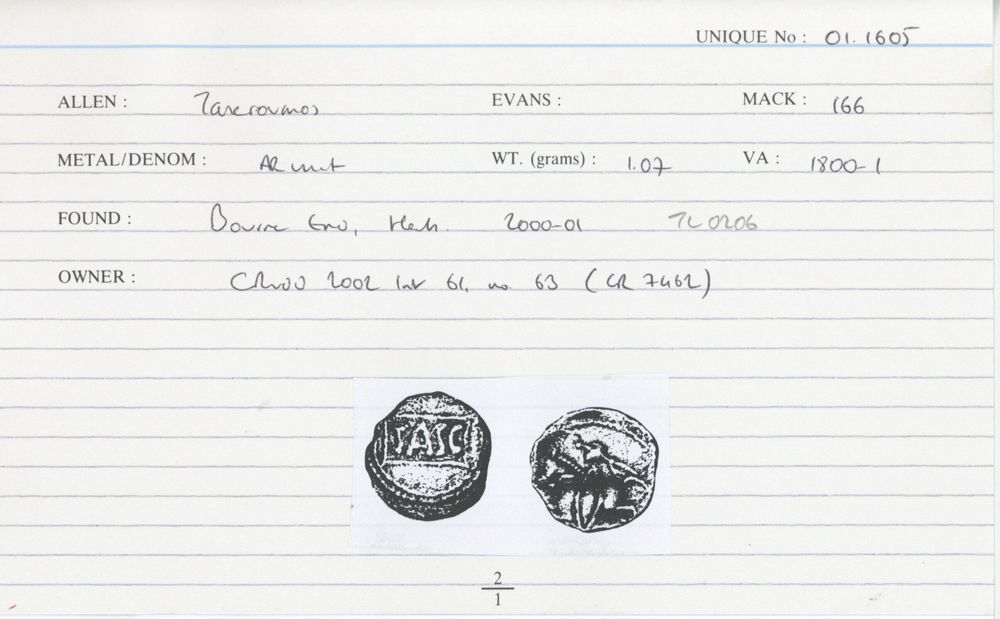 UNIQUE No : 01.1605
ALLEN : Tasciovanos EVANS : MACK : 166
METAL/DENOM : AR unit WT. (grams) : 1.07 VA : 1800-1
FOUND : Bourne End, Herts. 2000-01 TL0206
OWNER : 2002 61, no. 63 (CR 7462)
TASC
2
1